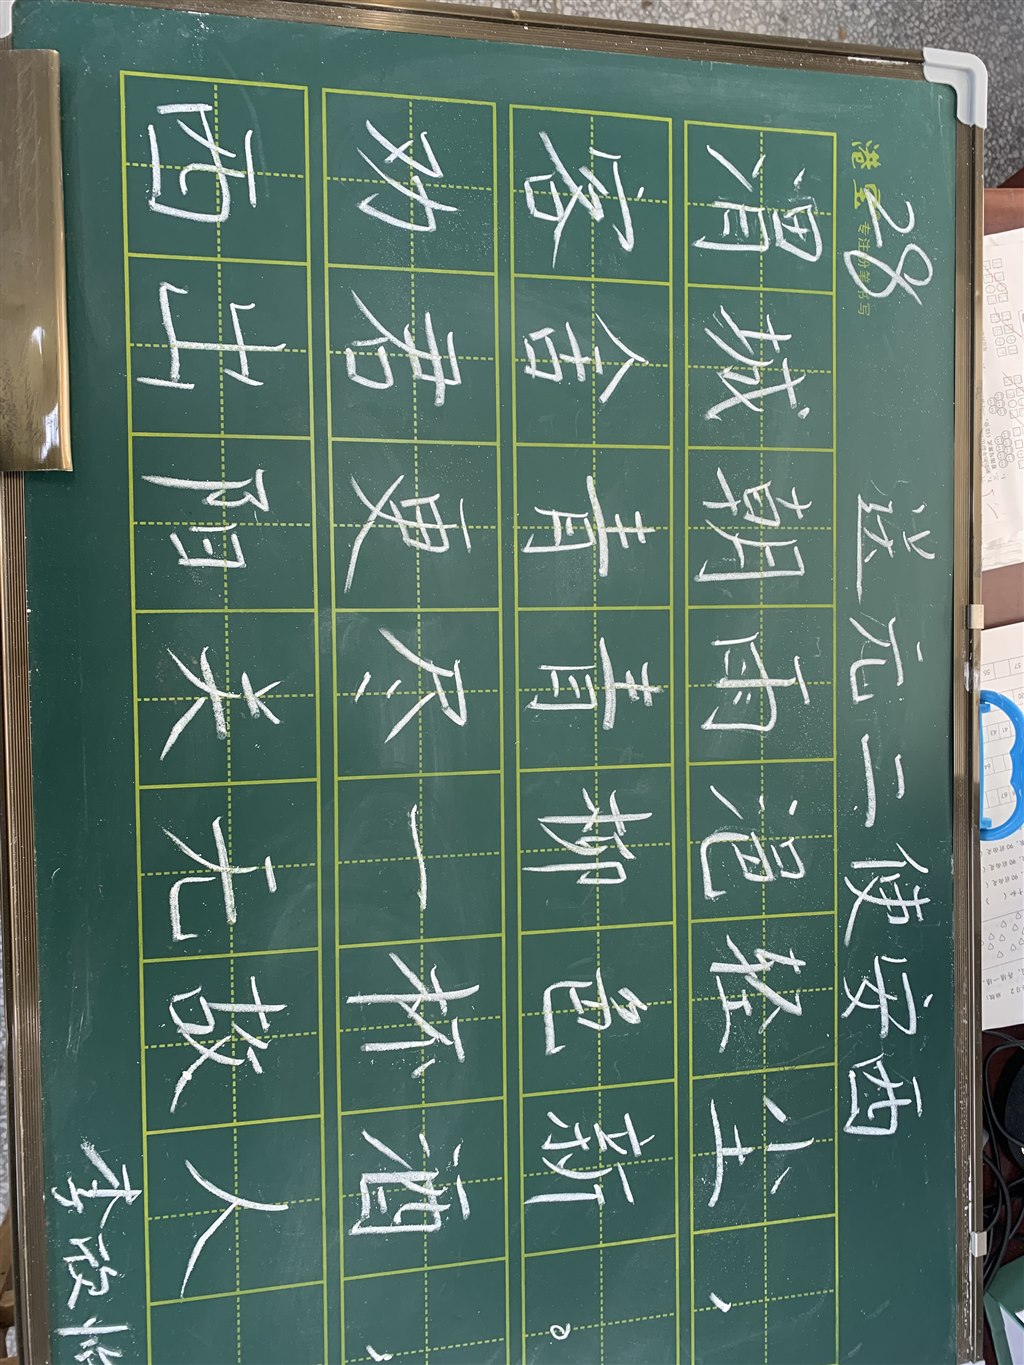 28
送元二使安西
渭城朝雨浥轻尘，
客舍青青柳色新。
劝君更尽一杯酒，
西出阳关无故人
李欣怡